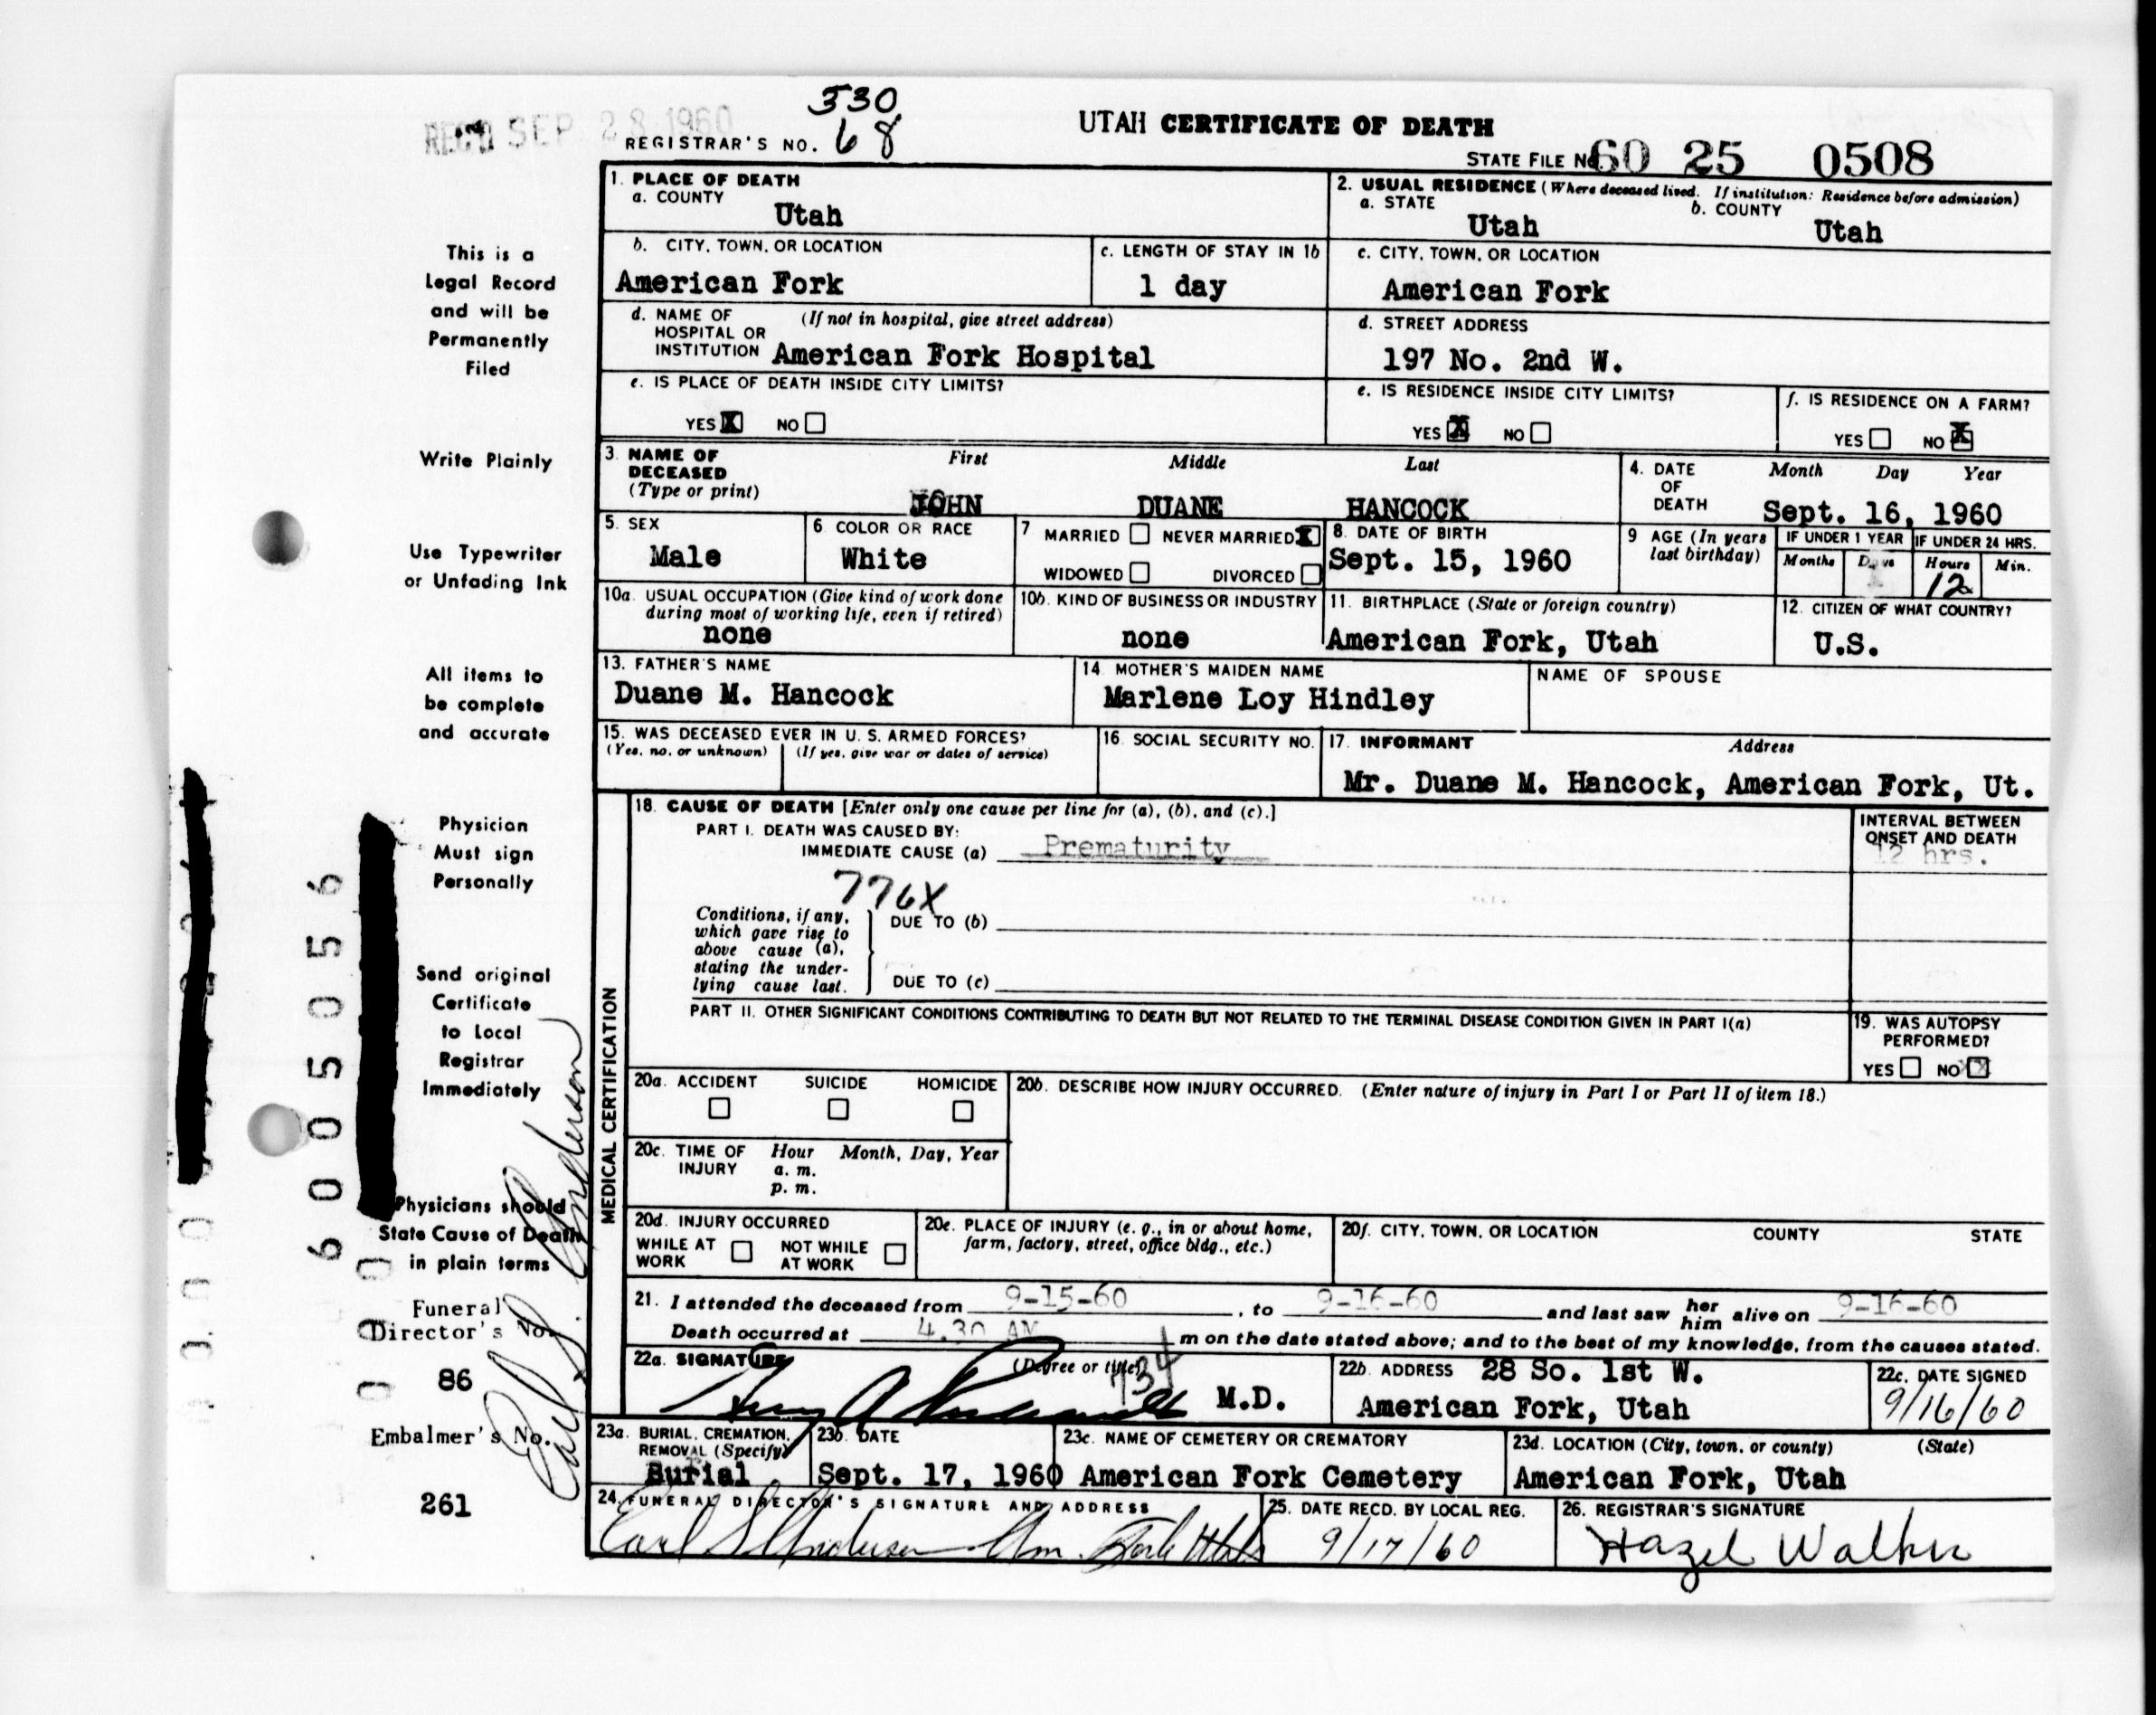 REC'D SEP 28 1960
330
REGISTRAR'S NO. 68
UTAH CERTIFICATE OF DEATH
STATE FILE NO. 60 25 0508
1. PLACE OF DEATH
a. COUNTY
Utah
2. USUAL RESIDENCE (Where deceased lived. If institution: Residence before admission)
a. STATE
Utah
b. COUNTY
Utah
b. CITY, TOWN, OR LOCATION
American Fork
c. LENGTH OF STAY IN 1b
1 day
c. CITY, TOWN, OR LOCATION
American Fork
d. NAME OF HOSPITAL OR INSTITUTION
(If not in hospital, give street address)
American Fork Hospital
d. STREET ADDRESS
197 No. 2nd W.
e. IS PLACE OF DEATH INSIDE CITY LIMITS?
YES X NO
e. IS RESIDENCE INSIDE CITY LIMITS?
YES X NO
f. IS RESIDENCE ON A FARM?
YES NO X
3. NAME OF DECEASED (Type or print)
First Middle Last
JOHN DUANE HANCOCK
4. DATE OF DEATH
Month Day Year
Sept. 16, 1960
5. SEX
Male
6 COLOR OR RACE
White
7 MARRIED NEVER MARRIED X
WIDOWED DIVORCED
8. DATE OF BIRTH
Sept. 15, 1960
9 AGE (In years last birthday)
IF UNDER 1 YEAR
Months Days
IF UNDER 24 HRS.
Hours Min.
12
10a. USUAL OCCUPATION (Give kind of work done during most of working life, even if retired)
none
10b. KIND OF BUSINESS OR INDUSTRY
none
11. BIRTHPLACE (State or foreign country)
American Fork, Utah
12. CITIZEN OF WHAT COUNTRY?
U.S.
13. FATHER'S NAME
Duane M. Hancock
14 MOTHER'S MAIDEN NAME
Marlene Loy Hindley
NAME OF SPOUSE
15. WAS DECEASED EVER IN U. S. ARMED FORCES?
(Yes, no, or unknown) (If yes, give war or dates of service)
16. SOCIAL SECURITY NO.
17. INFORMANT Address
Mr. Duane M. Hancock, American Fork, Ut.
MEDICAL CERTIFICATION
18. CAUSE OF DEATH [Enter only one cause per line for (a), (b), and (c).]
PART I. DEATH WAS CAUSED BY:
IMMEDIATE CAUSE (a) Prematurity
INTERVAL BETWEEN ONSET AND DEATH
12 hrs.
776X
Conditions, if any, which gave rise to above cause (a), stating the underlying cause last.
DUE TO (b)
DUE TO (c)
PART II. OTHER SIGNIFICANT CONDITIONS CONTRIBUTING TO DEATH BUT NOT RELATED TO THE TERMINAL DISEASE CONDITION GIVEN IN PART I(a)
19. WAS AUTOPSY PERFORMED?
YES NO X
20a. ACCIDENT SUICIDE HOMICIDE
20b. DESCRIBE HOW INJURY OCCURRED. (Enter nature of injury in Part I or Part II of item 18.)
20c. TIME OF INJURY
Hour Month, Day, Year
a. m.
p. m.
20d. INJURY OCCURRED
WHILE AT WORK NOT WHILE AT WORK
20e. PLACE OF INJURY (e. g., in or about home, farm, factory, street, office bldg., etc.)
20f. CITY, TOWN, OR LOCATION COUNTY STATE
21. I attended the deceased from 9-15-60, to 9-16-60 and last saw her him alive on 9-16-60
Death occurred at 4.30 AM m on the date stated above; and to the best of my knowledge, from the causes stated.
22a. SIGNATURE (Degree or title)
734
M.D.
22b. ADDRESS 28 So. 1st W.
American Fork, Utah
22c. DATE SIGNED
9/16/60
23a. BURIAL, CREMATION, REMOVAL (Specify)
Burial
23b. DATE
Sept. 17, 1960
23c. NAME OF CEMETERY OR CREMATORY
American Fork Cemetery
23d. LOCATION (City, town, or county) (State)
American Fork, Utah
24. FUNERAL DIRECTOR'S SIGNATURE AND ADDRESS
Earl S Anderson Am. Fork Utah
25. DATE RECD. BY LOCAL REG.
9/17/60
26. REGISTRAR'S SIGNATURE
Hazel Walker
This is a
Legal Record
and will be
Permanently
Filed
Write Plainly
Use Typewriter
or Unfading Ink
All items to
be complete
and accurate
Physician
Must sign
Personally
Send original
Certificate
to Local
Registrar
Immediately
Physicians should
State Cause of Death
in plain terms
Funeral
Director's No.
86
Embalmer's No.
261
Earl S. Anderson
6005056